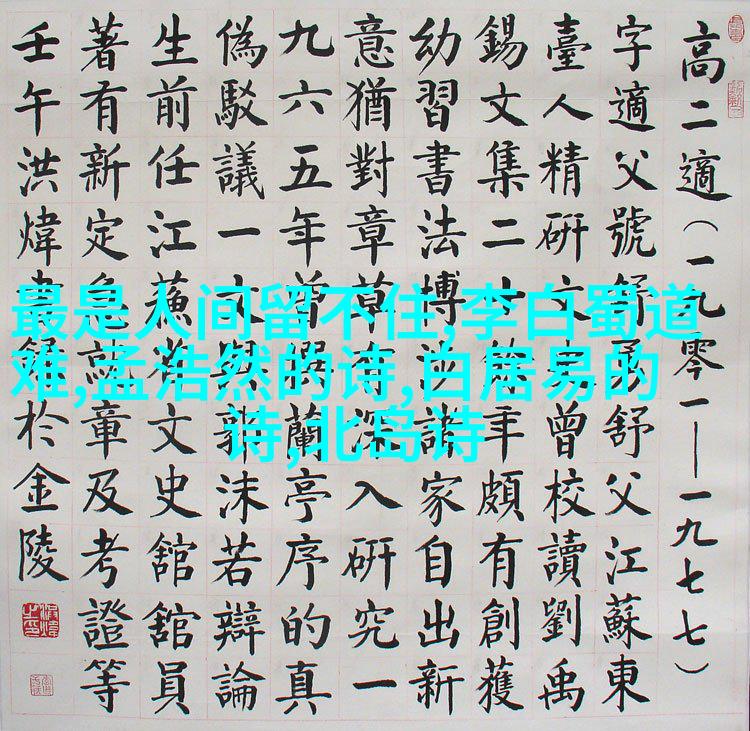 高二適（一九零一——一九七七）
字適父號舒舒父江蘇東
臺人精研文史曾校讀劉禹
錫文集二十餘年頗有創獲
幼習書法博涉諸家自出新
意猶對章草有深入研究一
九六五年曾撰蘭亭序的真
偽駁議一文與郭沫若辯論
生前任江蘇省文史館館員
著有新定急就章及考證等
壬午洪煒書於金陵
最是人间留不住,李白蜀道
难,孟浩然的诗,白居易的
诗,北岛诗